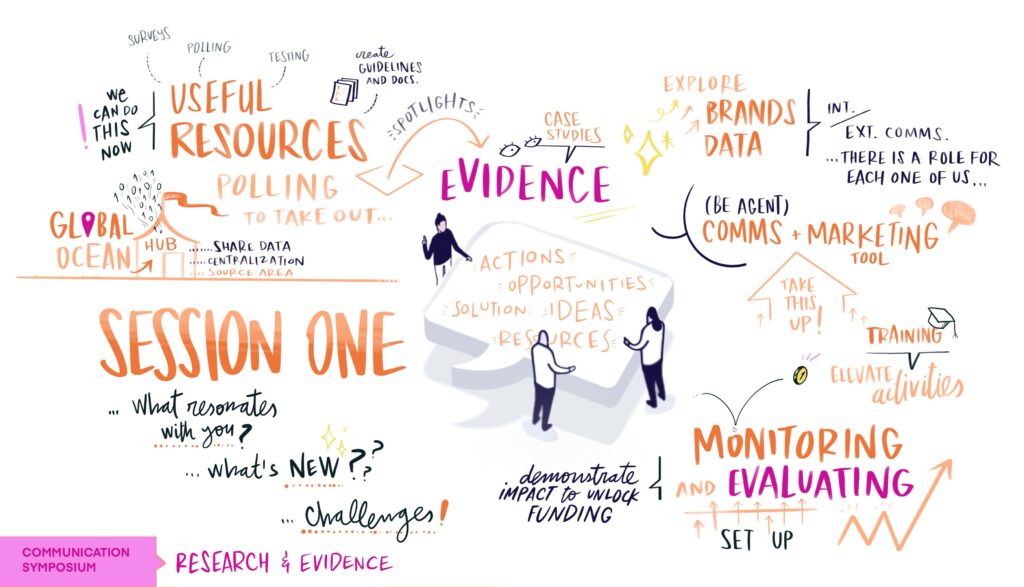 SURVEYS
POLLING
TESTING
create
GUIDELINES
AND DOCS.
WE
CAN DO
THIS
NOW
!
USEFUL
RESOURCES
SPOTLIGHTS
CASE
STUDIES
EVIDENCE
EXPLORE
BRANDS
DATA
INT./
EXT. COMMS.
...THERE IS A ROLE FOR
EACH ONE OF US...
POLLING
TO TAKE OUT...
GLOBAL
OCEAN
HUB
......SHARE DATA
.....CENTRALIZATION
....SOURCE AREA
(BE AGENT)
COMMS + MARKETING
TOOL
ACTIONS
OPPORTUNITIES
SOLUTION IDEAS
RESOURCES
TAKE
THIS
UP!
TRAINING
ELEVATE activities
SESSION ONE
... What resonates
with you?
... what's NEW ???
... challenges!
MONITORING
AND EVALUATING
SET UP
demonstrate
IMPACT to UNLOCK
FUNDING
COMMUNICATION
SYMPOSIUM
RESEARCH & EVIDENCE